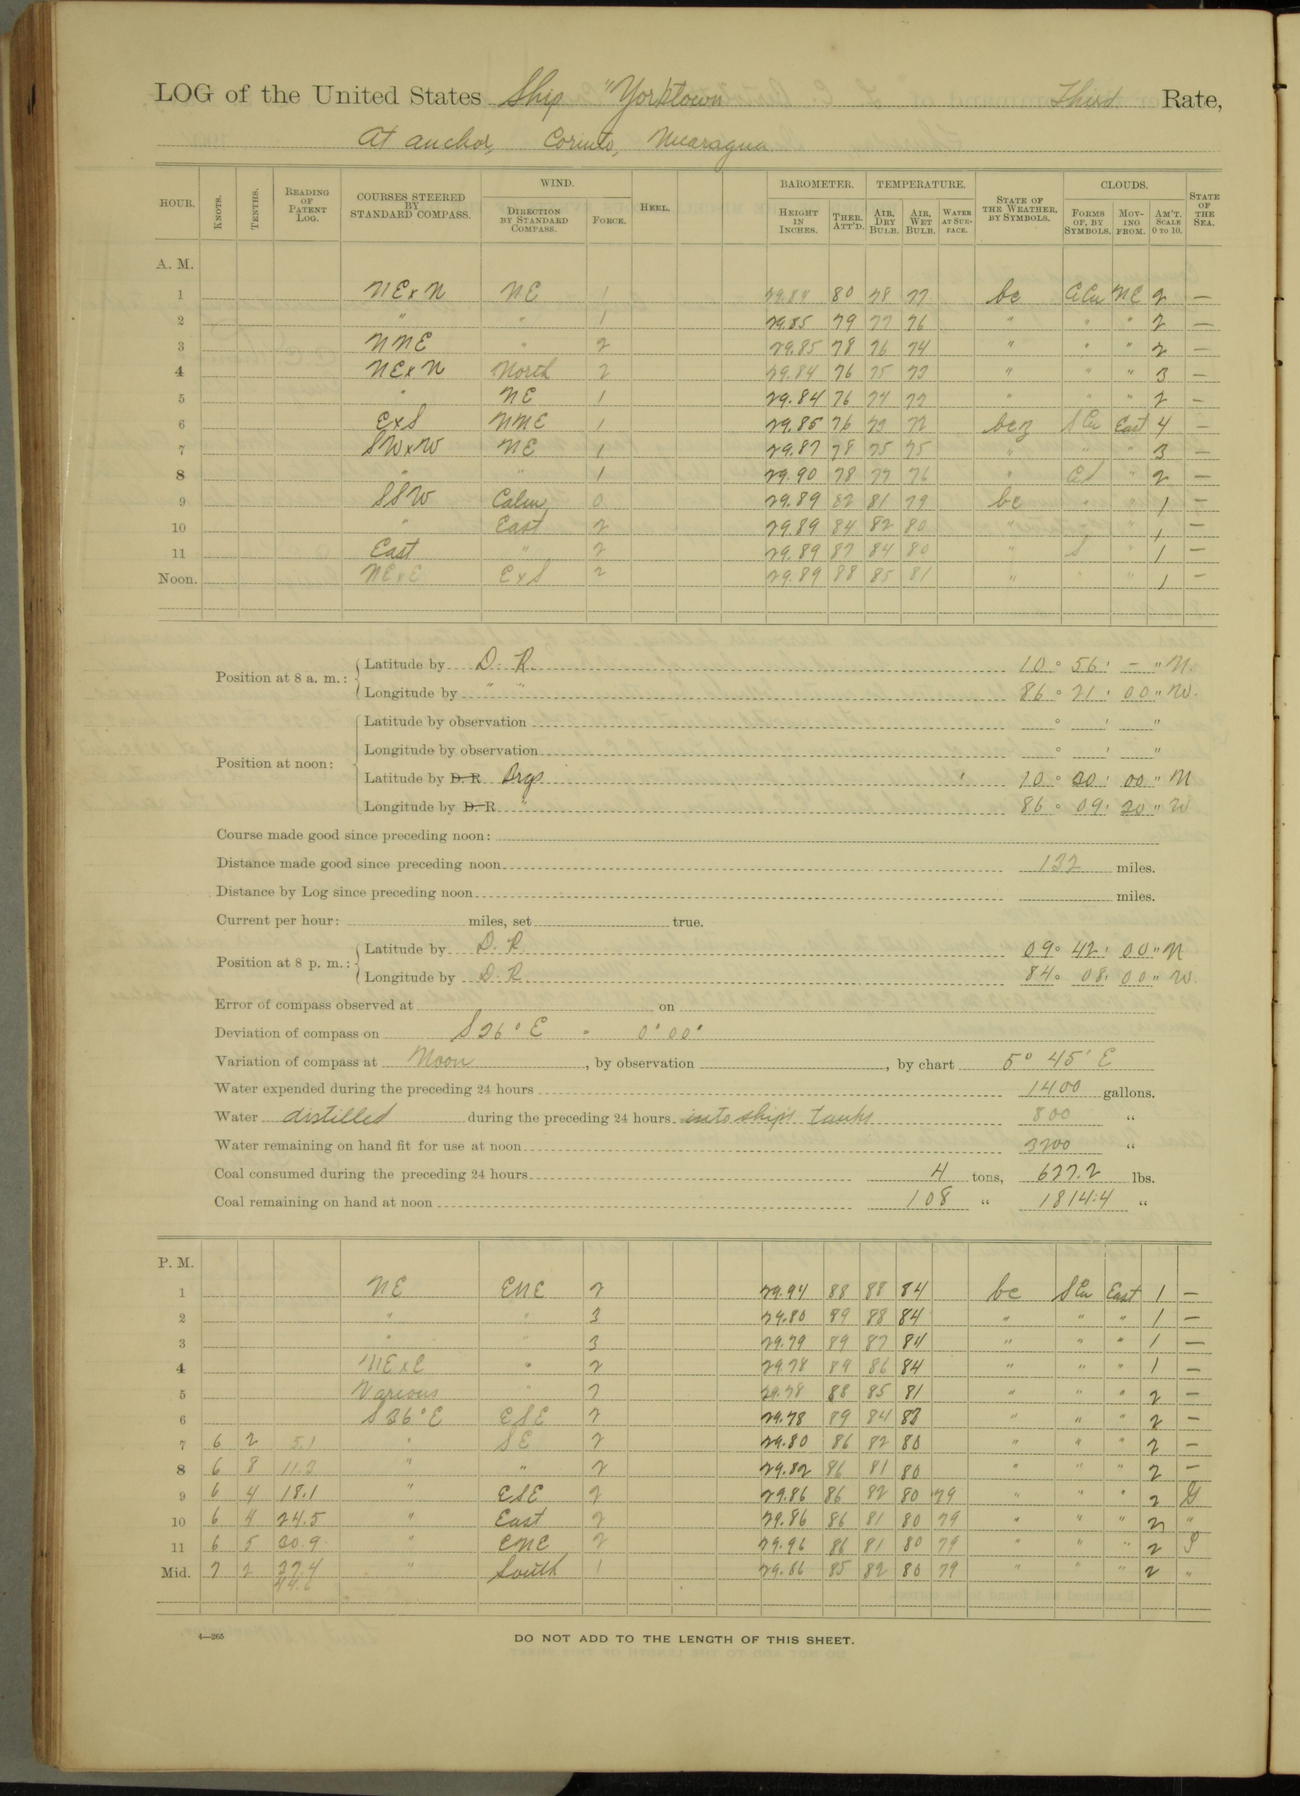 LOG of the United States Ship "Yorktown Third Rate,
At anchor, Corinto, Nicaragua
HOUR. KNOTS. TENTHS. READING OF PATENT LOG. COURSES STEERED BY STANDARD COMPASS. WIND. DIRECTION BY STANDARD COMPASS. FORCE. HEEL. BAROMETER. HEIGHT IN INCHES. THER. ATT'D. TEMPERATURE. AIR, DRY BULB. AIR, WET BULB. WATER AT SURFACE. STATE OF THE WEATHER, BY SYMBOLS. CLOUDS. FORMS OF, BY SYMBOLS. MOVING FROM. AM'T. SCALE 0 TO 10. STATE OF THE SEA.
A. M.
1 NExN NE 1 80 78 77 bc CCu NE 2 —
2 " " 1 29.85 79 77 76 " " " 2 —
3 NNE " 2 29.85 78 76 74 " " " 2 —
4 NExN North 2 29.84 76 75 73 " " " 3 —
5 " NE 1 29.84 76 74 72 " " " 2 —
6 ExS NNE 1 29.85 76 72 bcz SCu East 4 —
7 SWxW NE 1 29.87 78 75 75 " " " 3 —
8 " " 1 29.90 78 77 76 " CS " 2 —
9 SSW Calm 0 29.89 82 81 79 bc " " 1 —
10 " East 2 29.89 84 82 80 " " " 1 —
11 East " 2 29.89 87 84 80 " S " 1 —
Noon. NExE ExS 2 29.89 88 85 81 " " " 1 —
Position at 8 a. m.: Latitude by D. R. 10° 56' — " N.
Longitude by " " 86° 21' 00" W.
Position at noon: Latitude by observation ° ' "
Longitude by observation ° ' "
Latitude by D. R Brgs 10° 30' 00" N
Longitude by D. R " 86° 09' 20" W
Course made good since preceding noon:
Distance made good since preceding noon 132 miles.
Distance by Log since preceding noon miles.
Current per hour: miles, set true.
Position at 8 p. m.: Latitude by D. R. 09° 42' 00" N
Longitude by D. R. 84° 08' 00" W.
Error of compass observed at on
Deviation of compass on S 36° E = 0° 00'
Variation of compass at Noon, by observation, by chart 5° 45' E
Water expended during the preceding 24 hours 1400 gallons.
Water distilled during the preceding 24 hours into ships tanks 800 "
Water remaining on hand fit for use at noon 3200 "
Coal consumed during the preceding 24 hours 4 tons, 627.2 lbs.
Coal remaining on hand at noon 108 " 1814.4 "
P. M.
1 NE ENE 2 29.94 88 88 84 bc SCu East 1 —
2 " " 3 29.80 89 88 84 " " " 1 —
3 " " 3 29.79 89 87 84 " " " 1 —
4 NExE " 2 29.78 89 86 84 " " " 1 —
5 Various " 2 29.78 88 85 81 " " " 2 —
6 S 36° E ESE 2 29.78 89 84 83 " " " 2 —
7 6 2 5.1 " SE 2 29.80 86 82 80 " " " 2 —
8 6 8 11.3 " " 2 29.82 86 81 80 " " " 2 —
9 6 4 18.1 " ESE 2 29.86 86 82 80 79 " " " 2
10 6 4 24.5 " East 2 29.86 86 81 80 79 " " " 2 "
11 6 5 30.9 " ENE 2 29.96 86 81 80 79 " " " 2 S
Mid. 7 2 37.4 " South 1 29.86 85 82 80 79 " " " 2 "
44.6
4—265
DO NOT ADD TO THE LENGTH OF THIS SHEET.